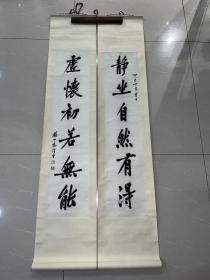 静坐自然有得
虚怀初若無能